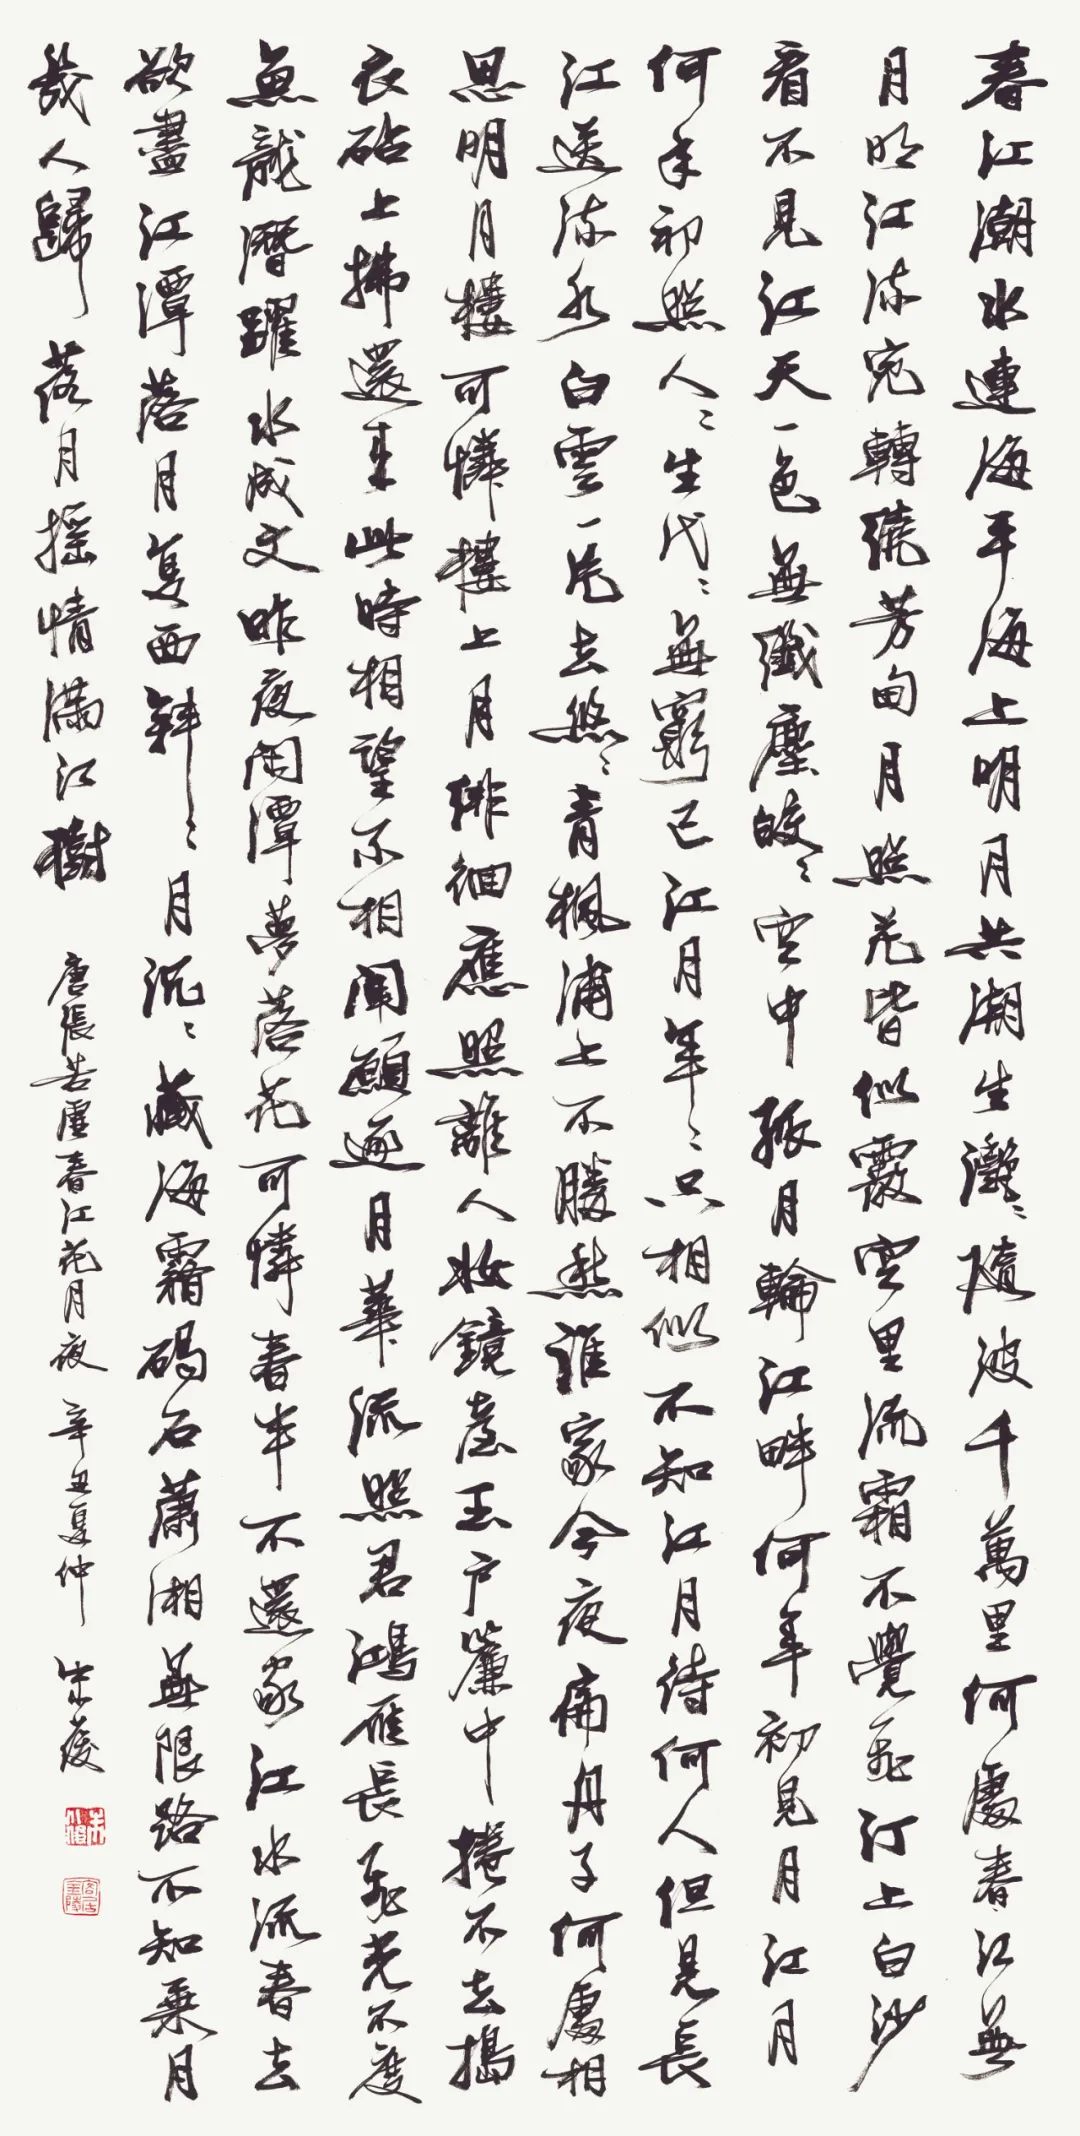 春江潮水連海平海上明月共潮生灔〻隨波千萬里何處春江無
月明江流宛轉繞芳甸月照花皆似霰空里流霜不覺飛汀上白沙
看不見江天一色無纖塵皎〻空中孤月輪江畔何年初見月江月
何年初照人〻生代〻無窮已江月年〻只相似不知江月待何人但見長
江送流水白雲一片去悠〻青楓浦上不勝愁誰家今夜扁舟子何處相
思明月樓可憐樓上月徘徊應照離人妝鏡臺玉戶簾中捲不去搗
衣砧上拂還來此時相望不相聞願逐月華流照君鴻雁長飛光不度
魚龍潛躍水成文昨夜閑潭夢落花可憐春半不還家江水流春去
欲盡江潭落月复西斜〻月沉〻藏海霜碣石蕭湘無限路不知乘月
幾人歸落月搖情滿江樹 唐張若虛春江花月夜 辛丑夏仲 朱